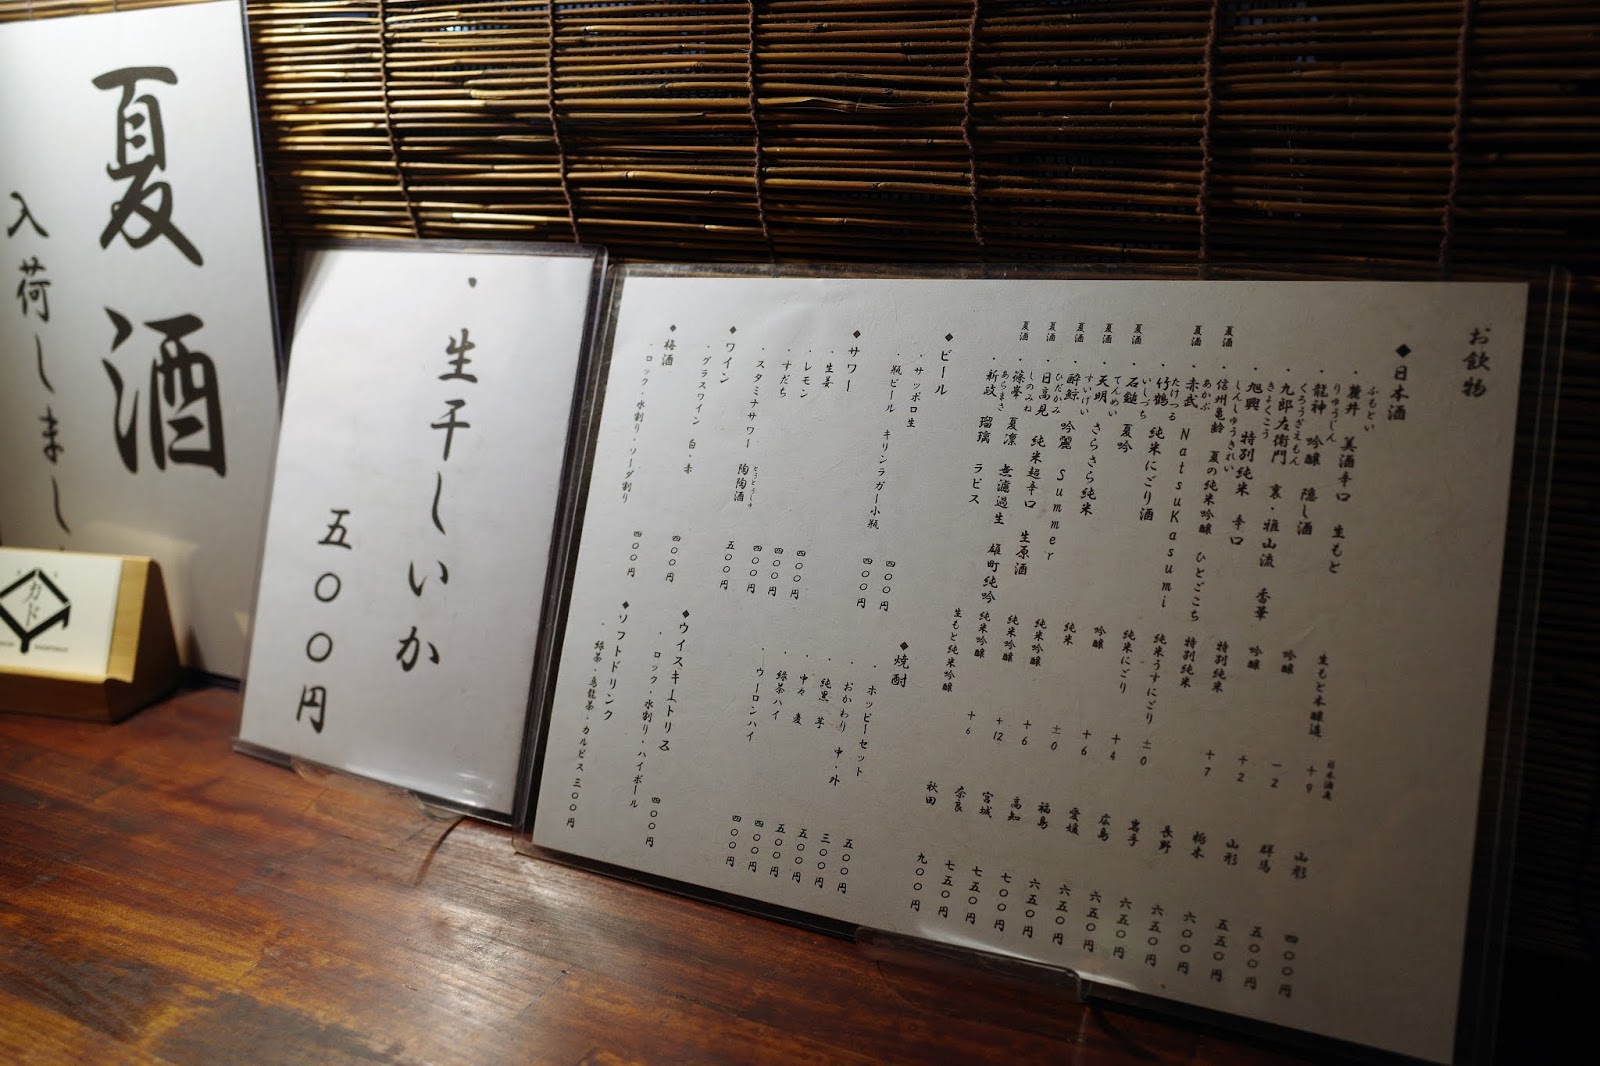 お飲物
◆日本酒
・麓井 美酒辛口 生もと 生もと本醸造 +9 山形 四〇〇円
ふもとい
日本酒度
・龍神 吟醸 隠し酒 吟醸 -2 群馬 五〇〇円
りゅうじん
・九郎左衛門 裏・雅山流 香華 吟醸 +2 山形 五五〇円
くろうざえもん
・旭興 特別純米 辛口 特別純米 +7 栃木 六〇〇円
きょくこう
夏酒 ・信州亀齢 夏の純米吟醸 ひとごこち 特別純米 長野 六五〇円
しんしゅうきれい
夏酒 ・赤武 NatsuKasumi 純米うすにごり ±0 岩手 六五〇円
あかぶ
・竹鶴 純米にごり酒 純米にごり +4 広島 六五〇円
たけつる
夏酒 ・石鎚 夏吟 吟醸 +6 愛媛 六五〇円
いしづち
夏酒 ・天明 さらさら純米 純米 ±0 福島 六五〇円
てんめい
夏酒 ・酔鯨 吟麗 Summer 純米吟醸 +6 高知 七〇〇円
すいげい
夏酒 ・日高見 純米超辛口 生原酒 純米吟醸 +12 宮城 七五〇円
ひだかみ
夏酒 ・篠峯 夏凛 無濾過生 雄町純吟 純米吟醸 +6 奈良 七五〇円
しのみね
・新政 瑠璃 ラピス 生もと純米吟醸 秋田 九〇〇円
あらまさ
◆ビール
・サッポロ生 四〇〇円
・瓶ビール キリンラガー小瓶 四〇〇円
◆サワー
・生姜
・レモン 四〇〇円
・すだち 四〇〇円
・スタミナサワー 陶陶酒 四〇〇円
とうとうしゅ
◆ワイン
・グラスワイン 白・赤 五〇〇円
◆梅酒
・ロック・水割り・ソーダ割り 四〇〇円
四〇〇円
◆焼酎
・ホッピーセット 五〇〇円
・おかわり 中・外 三〇〇円
・純黒 芋 五〇〇円
・中々 麦 五〇〇円
・緑茶ハイ 四〇〇円
・ウーロンハイ 四〇〇円
◆ウイスキートリス
・ロック・水割り・ハイボール 四〇〇円
◆ソフトドリンク
・緑茶・烏龍茶・カルピス 三〇〇円
・生干しいか
五〇〇円
夏酒
入荷しまし
カド